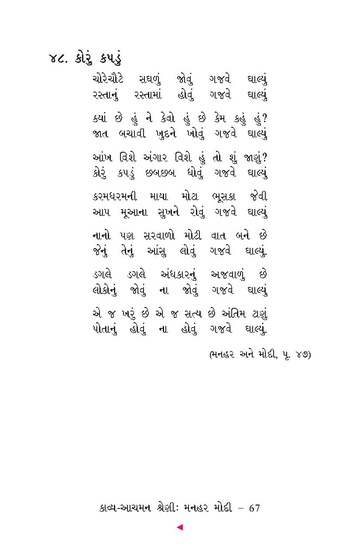 ૪૮. કોરું કપડું
ચોરેચૌટે સઘળું જોવું ગજવે ઘાલ્યું
રસ્તાનું રસ્તામાં હોવું ગજવે ઘાલ્યું
ક્યાં છે હું ને કેવો હું છે કેમ કહું હું?
જાત બચાવી ખુદને ખોવું ગજવે ઘાલ્યું
આંખ વિશે અંગાર વિશે હું તો શું જાણું?
કોરું કપડું છબછબ ધોવું ગજવે ઘાલ્યું
કરમધરમની માયા મોટા ભૂસકા જેવી
આપ મૂઆના સુખને રોવું ગજવે ઘાલ્યું
નાનો પણ સરવાળો મોટી વાત બને છે
જેનું તેનું આંસુ લોવું ગજવે ઘાલ્યું.
ડગલે ડગલે અંધકારનું અજવાળું છે
લોકોનું જોવું ના જોવું ગજવે ઘાલ્યું
એ જ ખરું છે એ જ સત્ય છે અંતિમ ટાણું
પોતાનું હોવું ના હોવું ગજવે ઘાલ્યું.
(મનહર અને મોદી, પૃ. ૪૭)
કાવ્ય-આચમન શ્રેણીઃ મનહર મોદી – 67